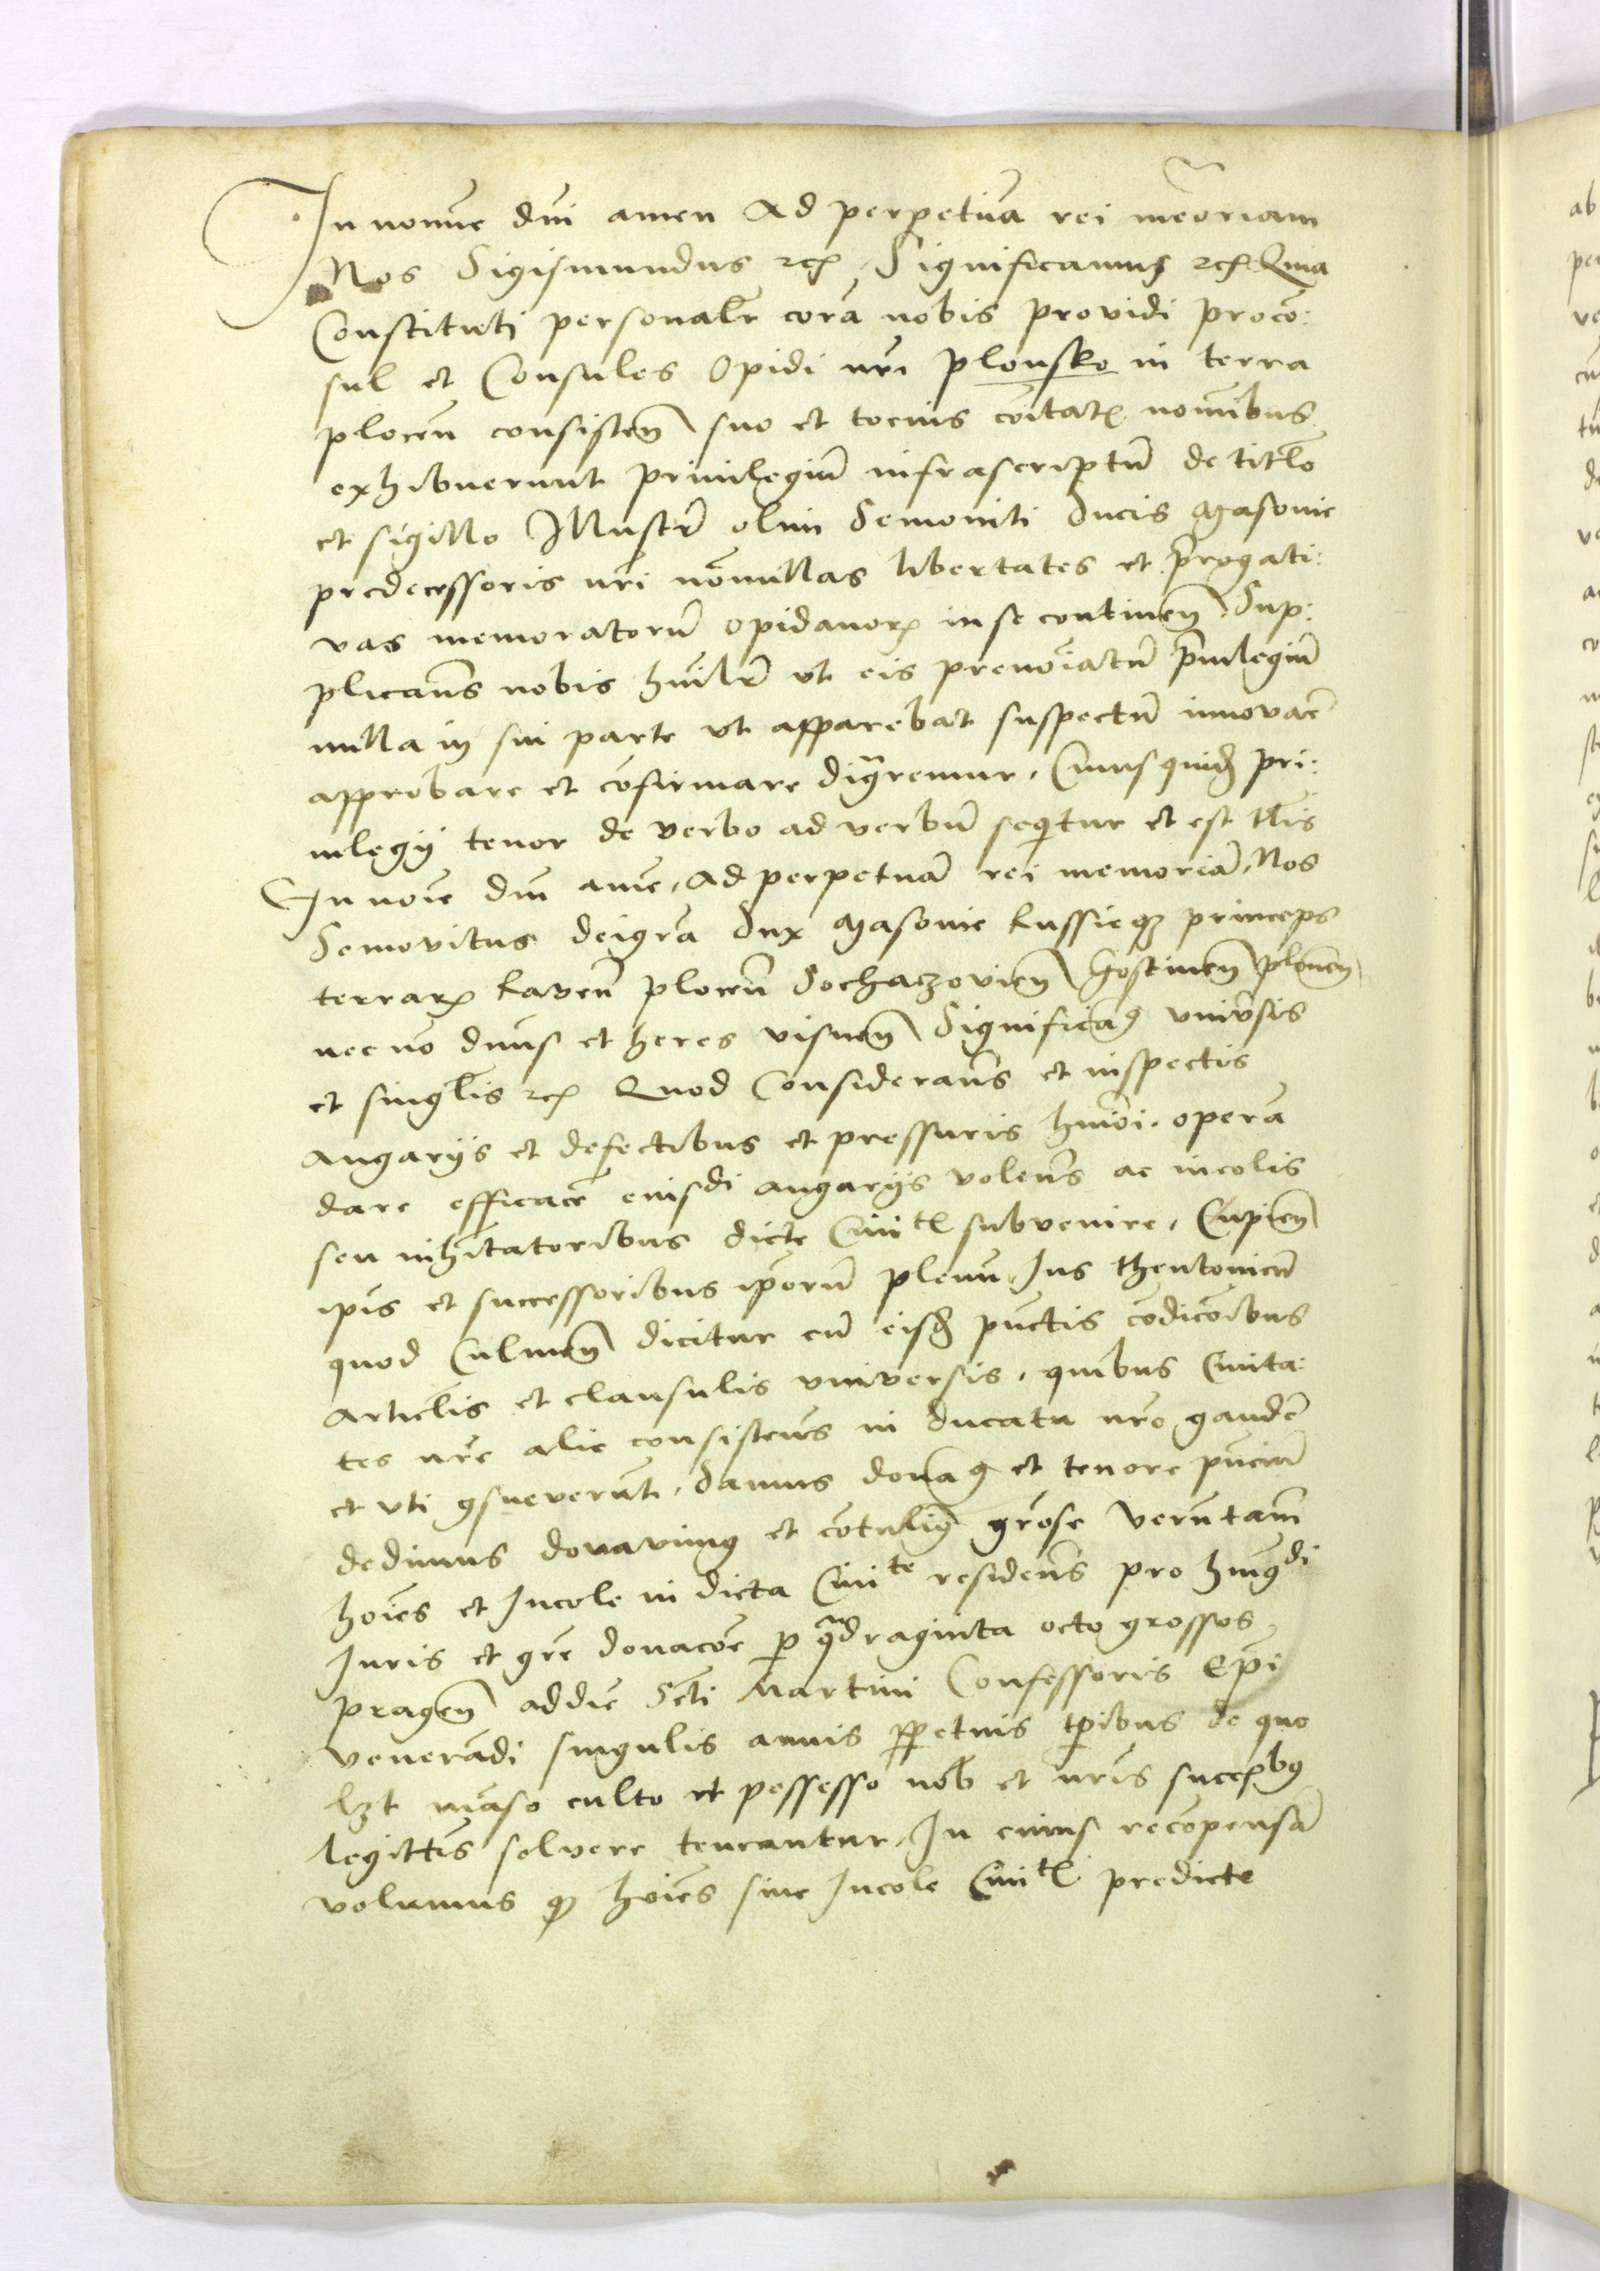 In noīe dni amen Ad perpetuā rei meōriam
Nos Sigismundus rex Significamus etc Quia
Constituti personalr corā nobis providi proco:
sul et Consules Opidi nri plonsko in terra
plocen̄ consisten̄ suo et tocius cōitatis nominibus
exhibuerunt priuilegiū infrascriptū de titlo
et sigillo Illustris olim Semoviti Ducis Masovie
predecessoris nri nōnullas libertates et prerogati:
vas memoratorū opidanorū in se continen̄ Sup:
plicans nobis huīlr ut eis prenoīatū priuilegiū
nulla in sui parte ut apparebat suspectū innovare
approbare et cōfirmare dignaremur, Cuiusquidē pri:
uilegij tenor de verbo ad verbū sequitur et est tlis
In noīe dni amē, Ad perpetuā rei memoriā, Nos
Semovitus dei gra Dux Masovie Russieque princeps
terrarū Raven̄ plocen̄ Sochaczovien̄ Gostinen̄ plonen̄
nec nō dnus et heres visnen̄ Significamus universis
et singlis etc Quod Considerans et inspectis
angarijs et defectibus et pressuris huiōi, operā
dare efficacē euisdi angarijs volens ac incolis
seu inhītatoribus dicte Ciuitis subvenire, Cupien̄
ipīs et successoribus ipōrū plenū Ius theutonicū
quod Culmen̄ dicitur cū eisdē pūctis cōdicōibus
articlis et clausulis universis, quibus Ciuita:
tes nre alie consistens in ducatu nro gaudē
et uti gsueverūt, Damus donamus et tenore pñciū
dedimus donavimus et cōtulimus grose Verūtam̄
hoīes et Incole in dicta Ciuite residens pro huiusdi
Iuris et gre donacōe p quadraginta octo grossos
pragen̄ ad diē Scti Martini Confessoris Epi
venerādi singulis annis perpetuis tpibus de quo
lzt māso culto et possesso nob et nris succeribus
legittis solvere teneantur, In cuius recōpensā
volumus quod hoīes sive Incole Ciuitis predicte